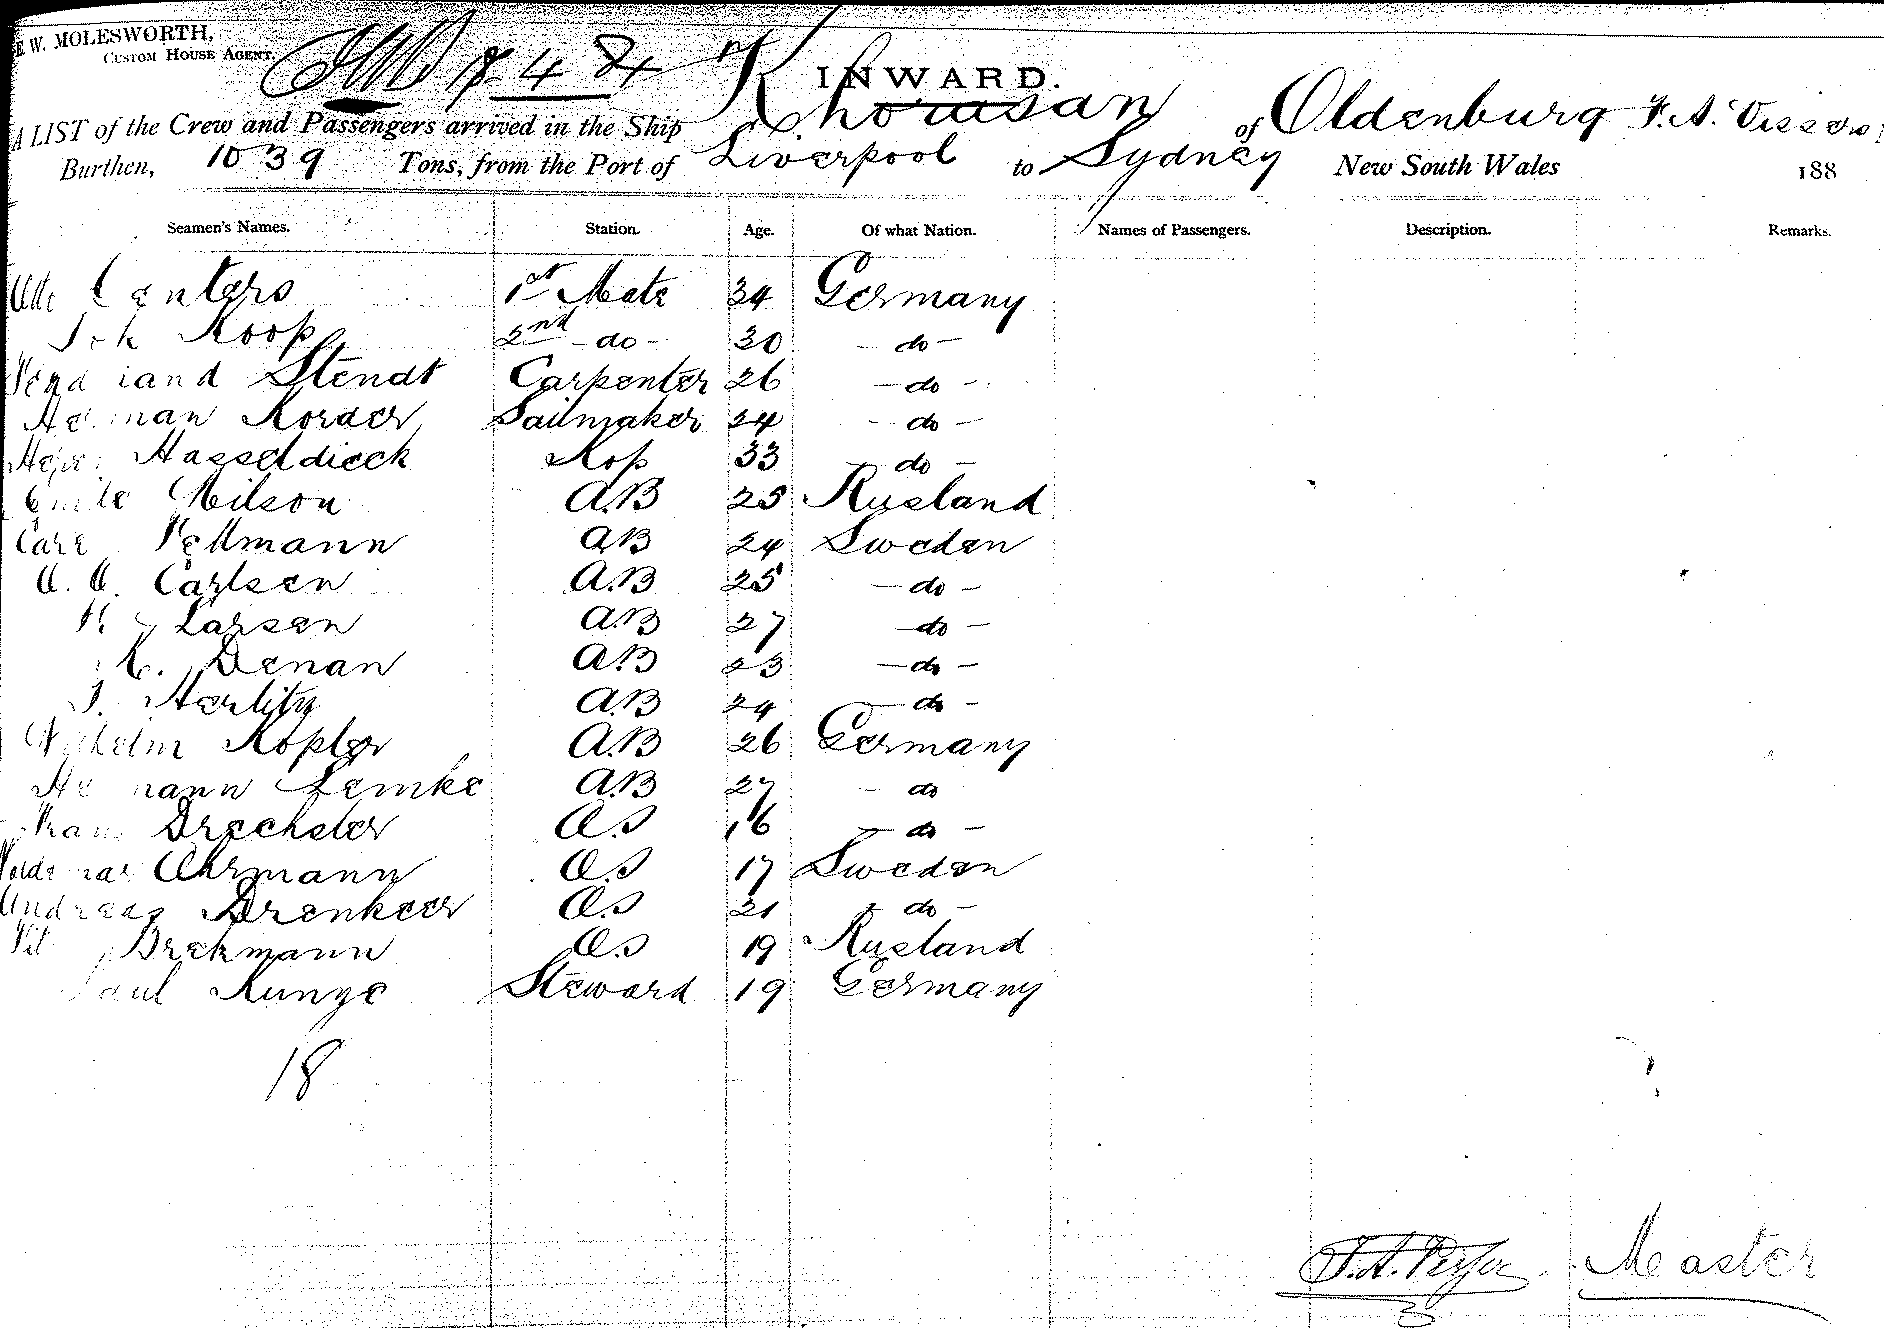 E. W. MOLESWORTH,
CUSTOM HOUSE AGENT.
INWARD.
A LIST of the Crew and Passengers arrived in the Ship Khorasan of Oldenburg F. A.
Burthen, 1039 Tons, from the Port of Liverpool to Sydney New South Wales 188
Seamen's Names. Station. Age. Of what Nation. Names of Passengers. Description. Remarks.
1st Mate 34 Germany
Joh Koop 2nd - do - 30 - do -
Stendt Carpenter 26 - do -
Herman Korder Sailmaker 24 - do -
Hasseldieck Kop 33 - do -
Emile Nilson A.B 25 Rusland
Carl A.B 24 Sweden
O. O. Carlsen A.B 25 - do -
K Larsen A.B 27 - do -
K. Denan A.B 23 - do -
J. Herlitz A.B 24 - do -
Wilhelm Kopler A.B 26 Germany
Hermann Lemke A.B 27 - do
Drechsler O.S 16 - do -
Ohrmann O.S 17 Sweden
Andreas Drenkeer O.S 21 - do -
Brekmann O.S 19 Rusland
Paul Kunze Steward 19 Germany
18
F. A. Master